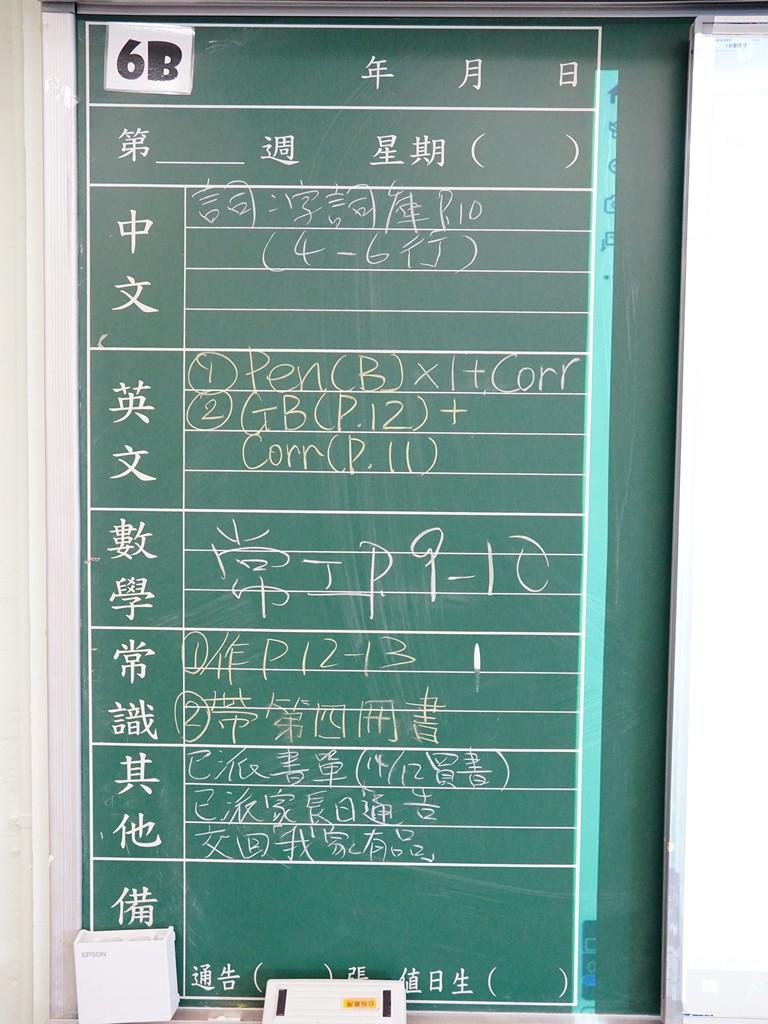 6B
年 月 日
第____週 星期( )
中文
詞:字詞庫P.10
(4-6行)
英文
① Pen(B)×1+Corr
② GB(P.12)+
Corr(P.11)
數學
常工P.9-10
常識
①作P12-13
②帶第四冊書
其他
已派書單(14/12買書)
已派家長日通告
交回"我家有品"
備
通告( )張 值日生( )
EPSON